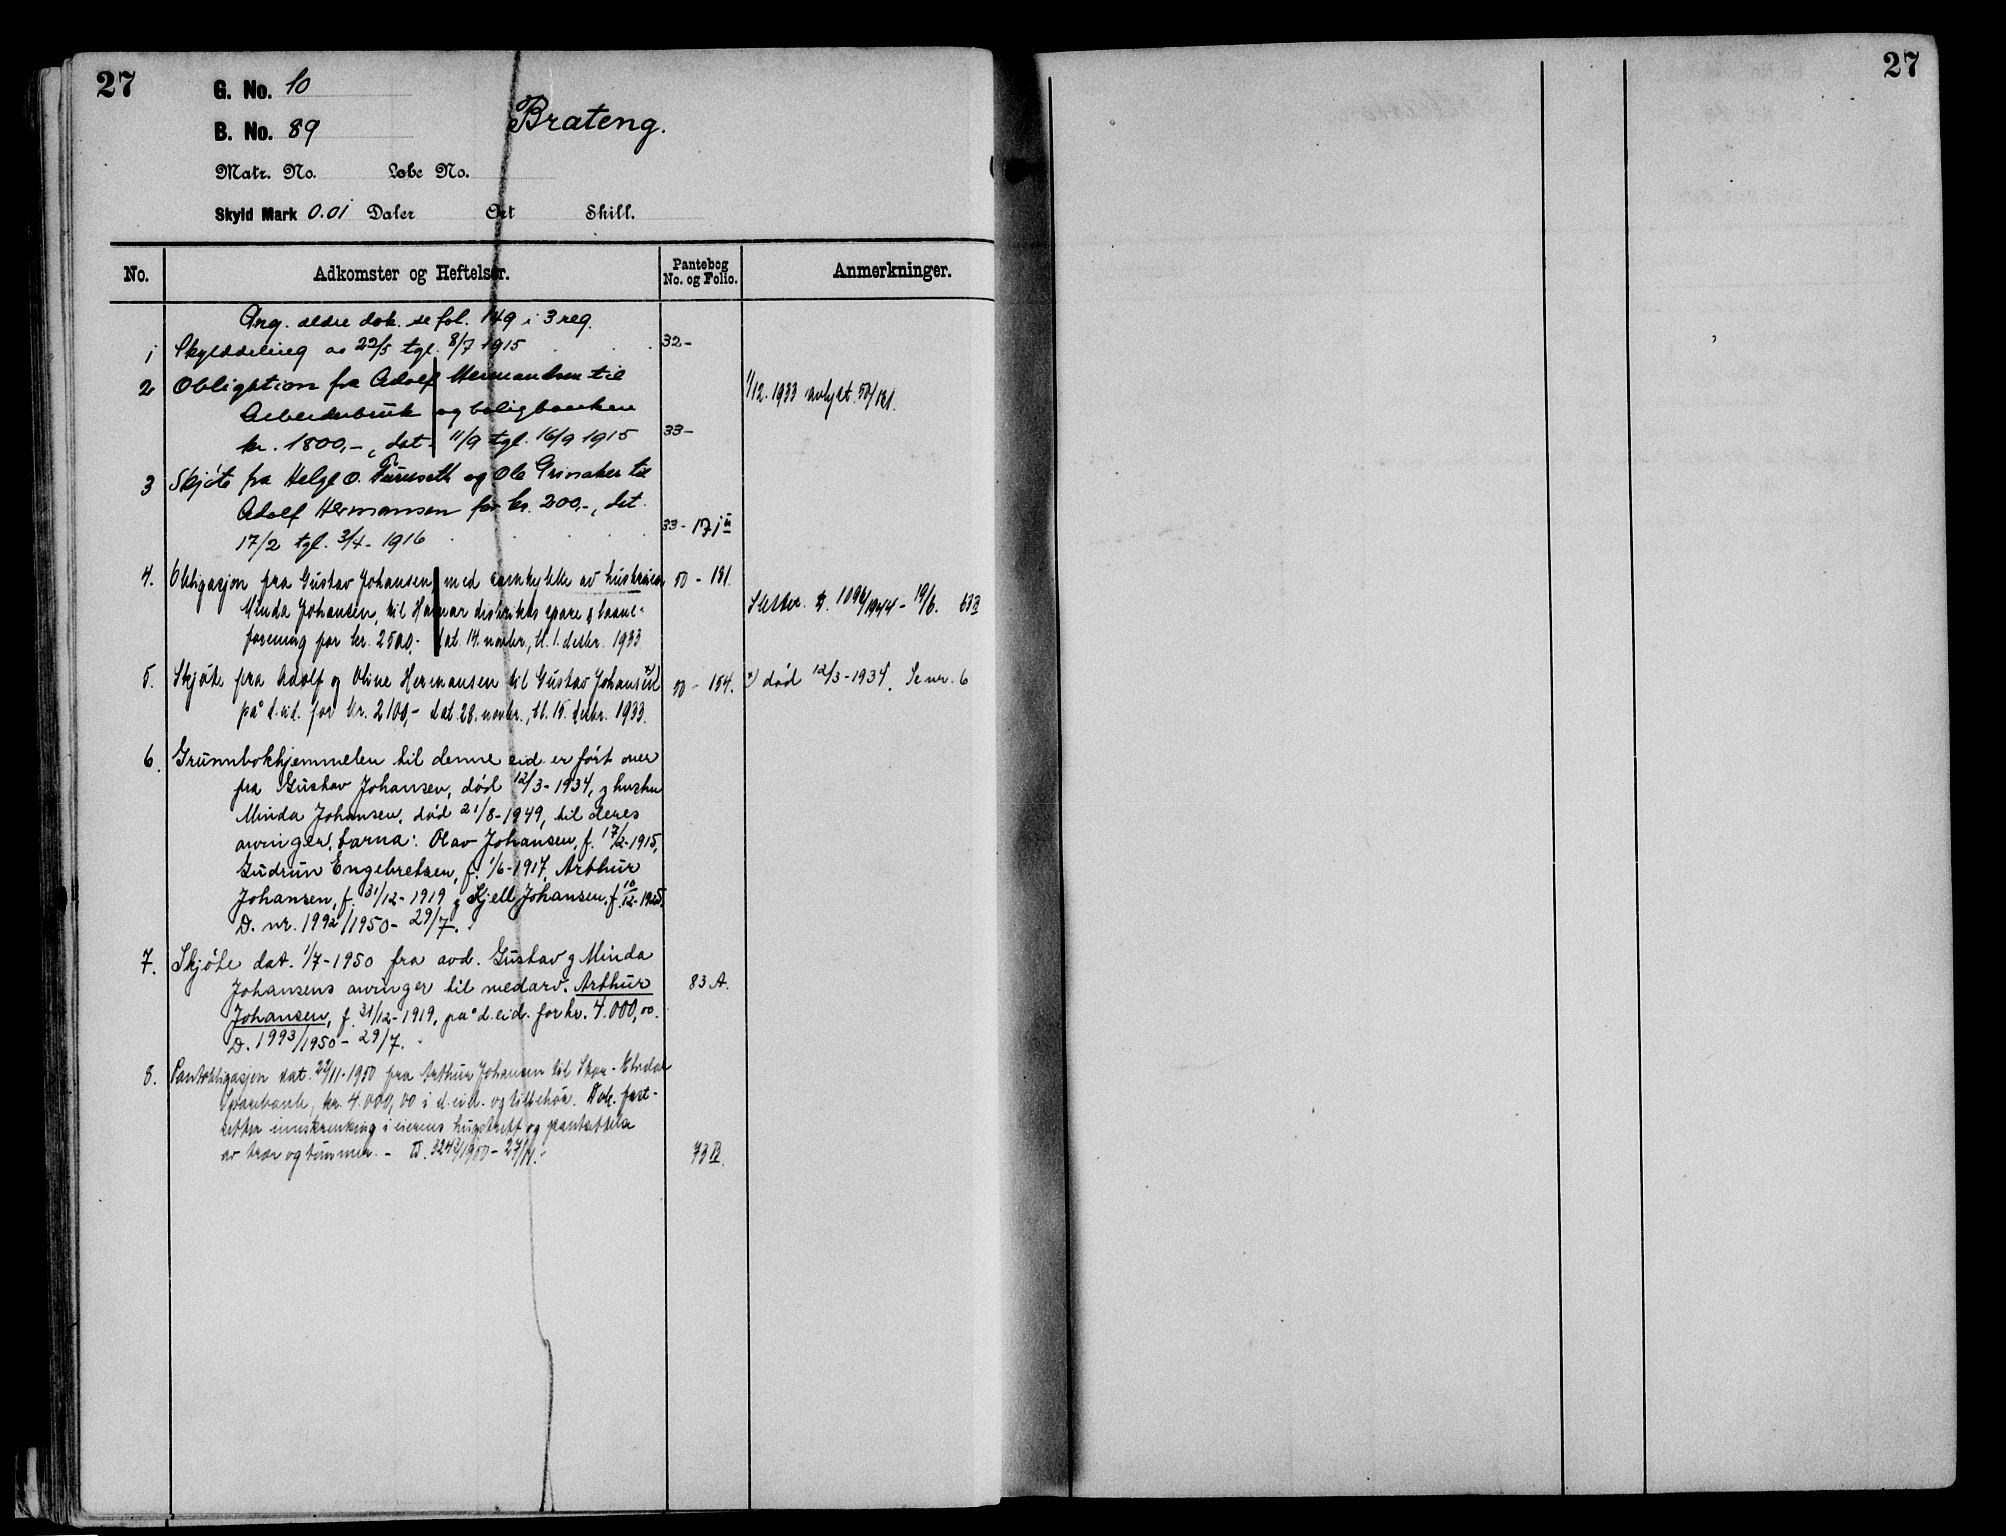 27
G. No. 10
B. No. 89
Brateng.
Matr. No. Løbe No.
Skyld Mark 0.01 Daler Ort Skill.
No. Adkomster og Heftelser. Pantebog No. og Folio. Anmerkninger.
Ang. eldre dok. se fol. 149 i 3 reg.
1 Skylddeling av 22/5 tgl. 8/7 1915 32-
2 Obligation fra Adolf Hermandsen til
Arbeiderbruk og boligbanken
kr. 1800,-, dat. 11/9 tgl. 16/9 1915 33-
1/12. 1933 avlyst. 50/181.
3 Skjøte fra Helge O. Furuseth og Ole Grinaker til
Adolf Hermansen for kr. 200,-, dat.
17/2 tgl. 3/4 - 1916 33-171
4. Obligasjon fra Gustav Johansen, med samtykke av hustruen 50 - 181.
Minda Johansen, til Hamar distrikts spare & laane-
forening for kr. 2500,- dat. 14. novbr., tl. 1. desbr. 1933
Slettet. D. 1096/1944 - 19/6. 63B
5. Skjøte fra Adolf og Oline Hermansen til Gustav Johansen x) 50 - 154.
på d. eid. for kr. 2100,- dat. 28. novbr., tl. 15. desbr. 1933.
x) død 12/3-1934. Se nr. 6
6. Grunnbokhjemmelen til denne eid. er ført over
fra Gustav Johansen, død 12/3-1934, & hustru
Minda Johansen, død 21/8-1949, til deres
arvinger, barna: Olav Johansen, f. 17/2-1915,
Gudrun Engebretsen, f. 1/6-1917, Arthur
Johansen, f. 31/12-1919 & Kjell Johansen, f. 10/12-1925.
D. nr. 1992/1950 - 29/7.
7. Skjøte dat. 1/7-1950 fra avd. Gustav & Minda
Johansens arvinger til medarv. Arthur 83 A.
Johansen, f. 31/12-1919, på d. eid. for kr. 4.000,00.
D. 1993/1950 - 29/7.
8. Pantobligasjon dat. 22/11-1950 fra Arthur Johansen til
Sparebank, kr. 4.000,00 i d. eid. og tilbehør. Dok. fast-
setter innskrenking i eierens hugstrett og pantsettelse
av trær og tømmer. - D. 3243/1950 - 27/11. 73 B.
27